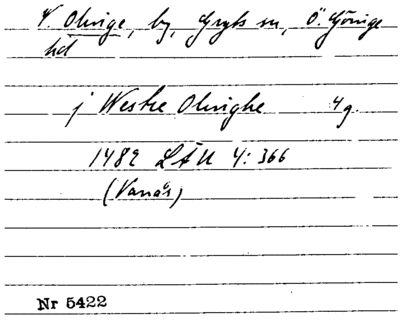 V. Olinge, by, Gryts sn, Ö. Göinge
hd
j Westre Olinghe 4 g.
1482 LÄU 4: 366
(Vanås)
Nr 5422